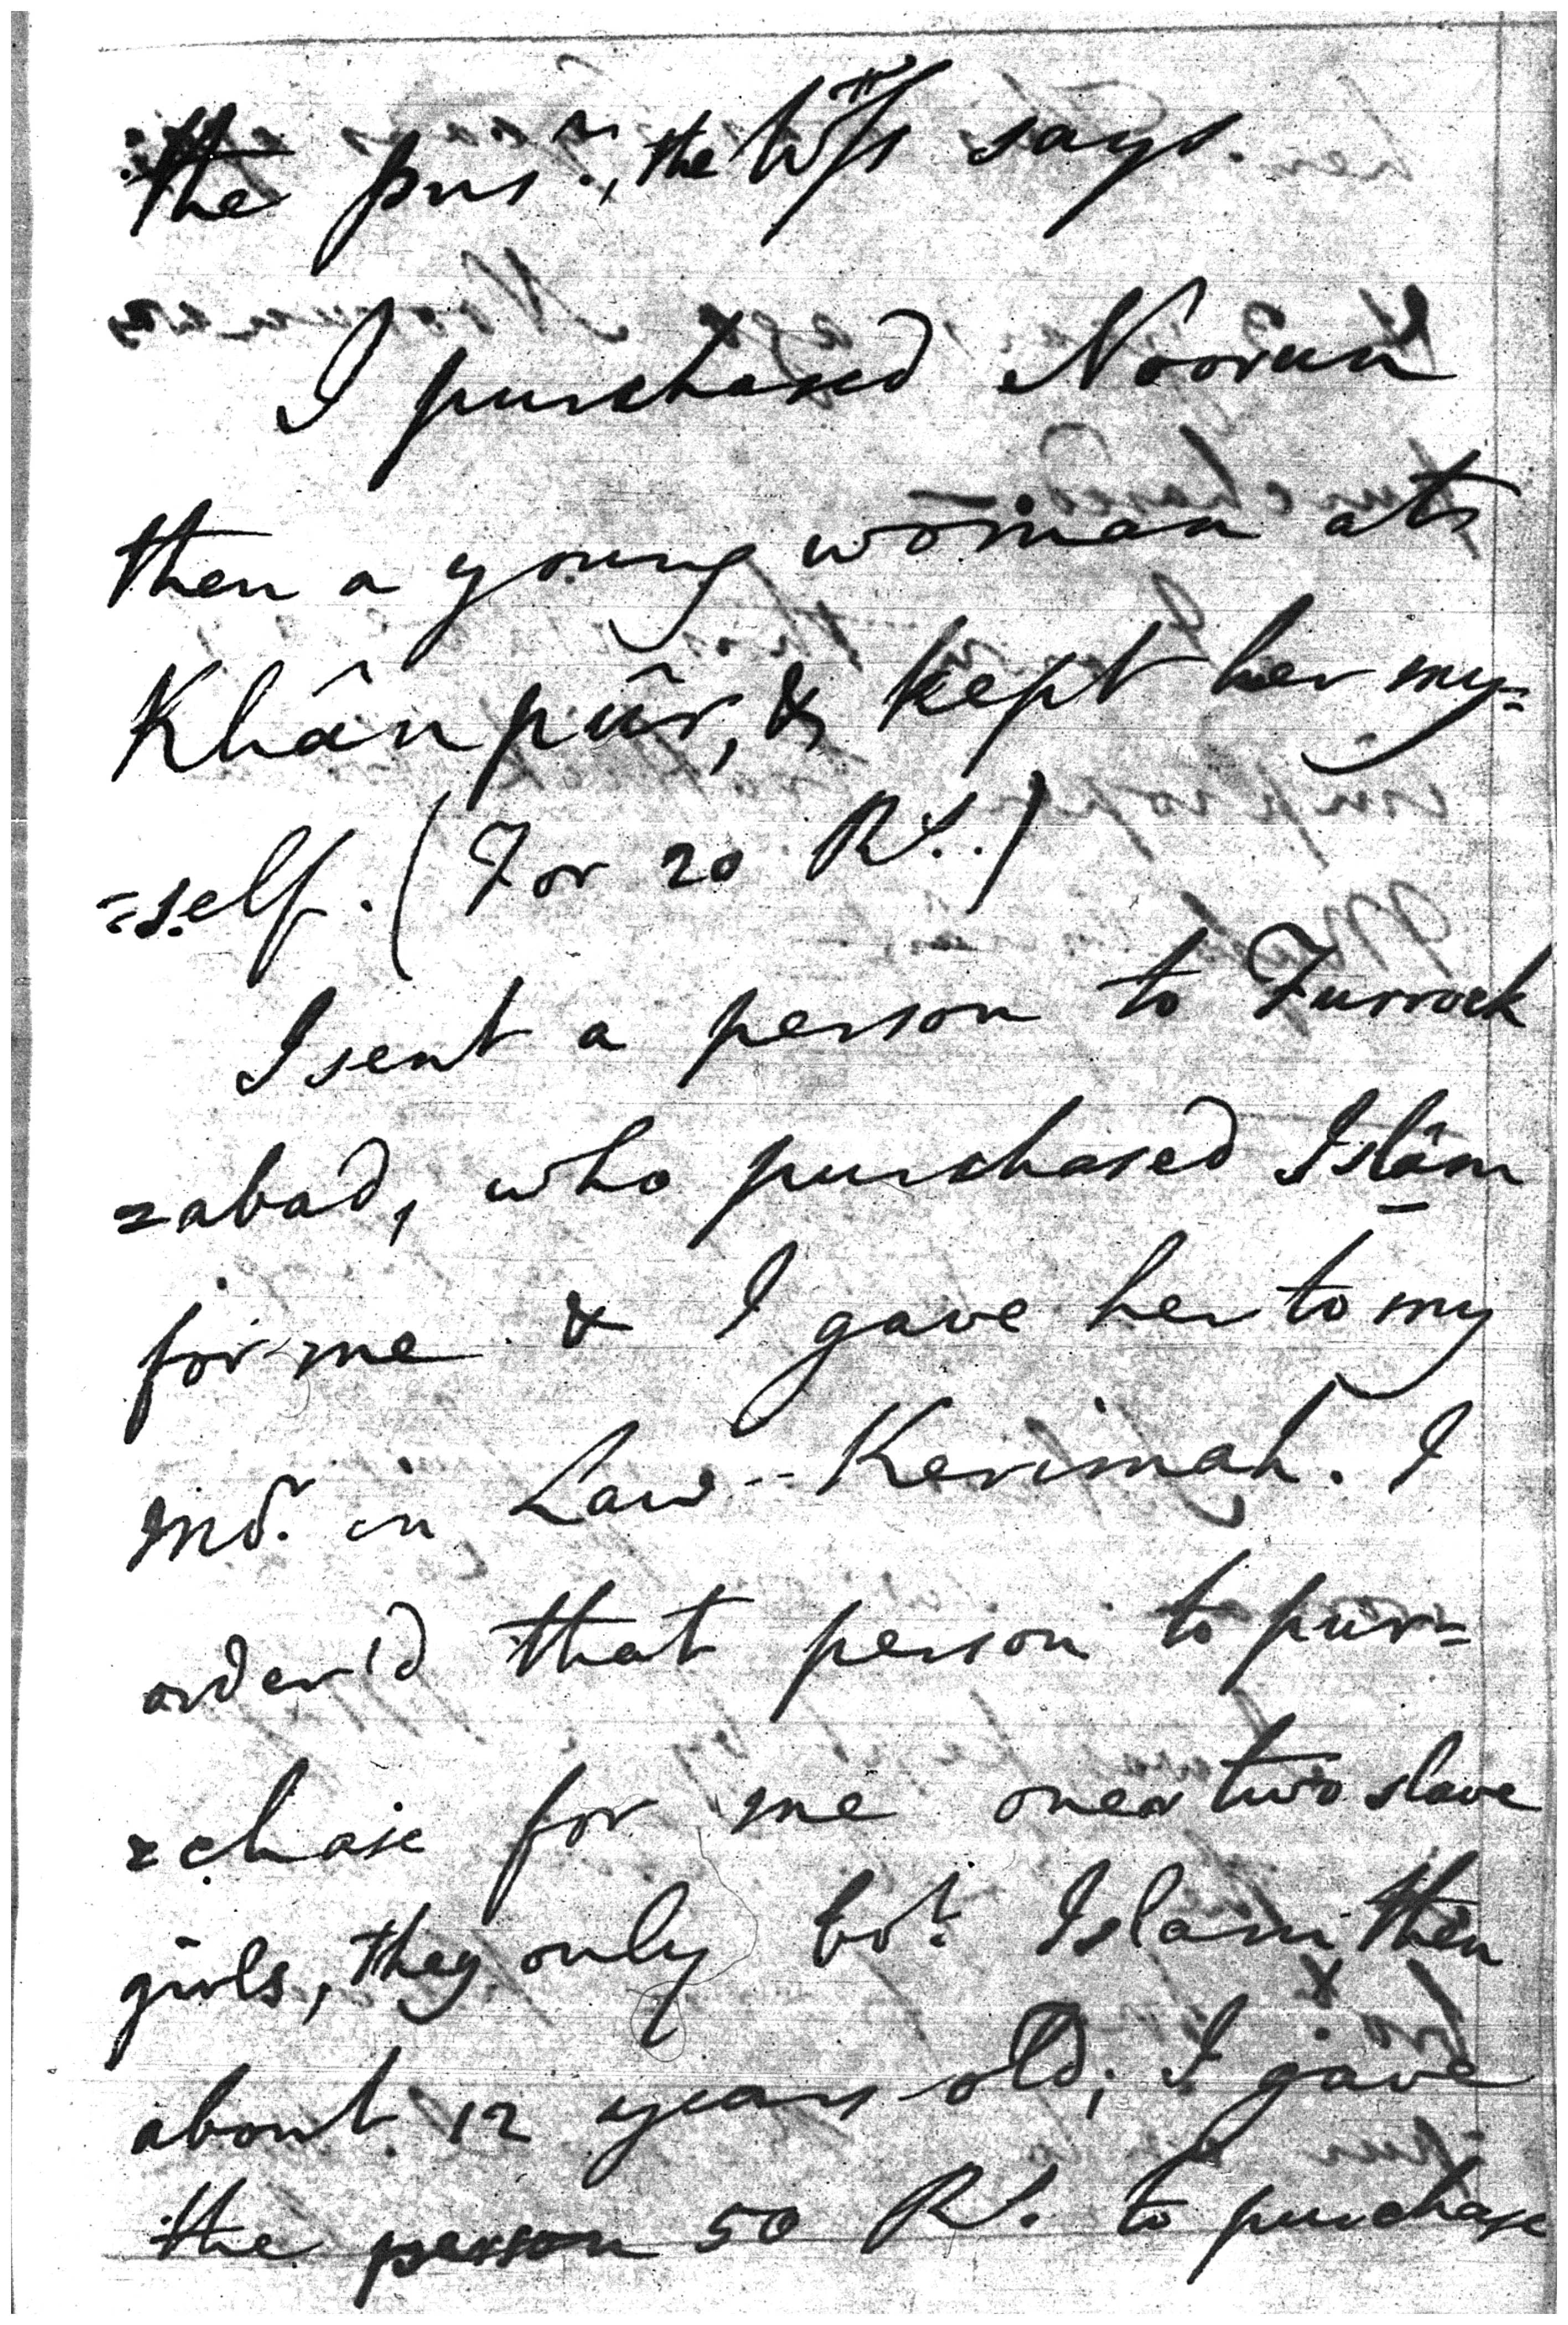 the pris.r, the Wss says.
I purchased Noorun
then a young woman at
Khânpûr, & kept her my=
=self. (For 20 Rs.)
I sent a person to Furrock
=abad, who purchased Islâm
for me & I gave her to my
Mo.r in Law -- Kerimah. I
order'd that person to pur=
=chase for me one or two slave
girls, they only bo.t Islam then
about 12 years old; I gave
the person 50 Rs. to purchase